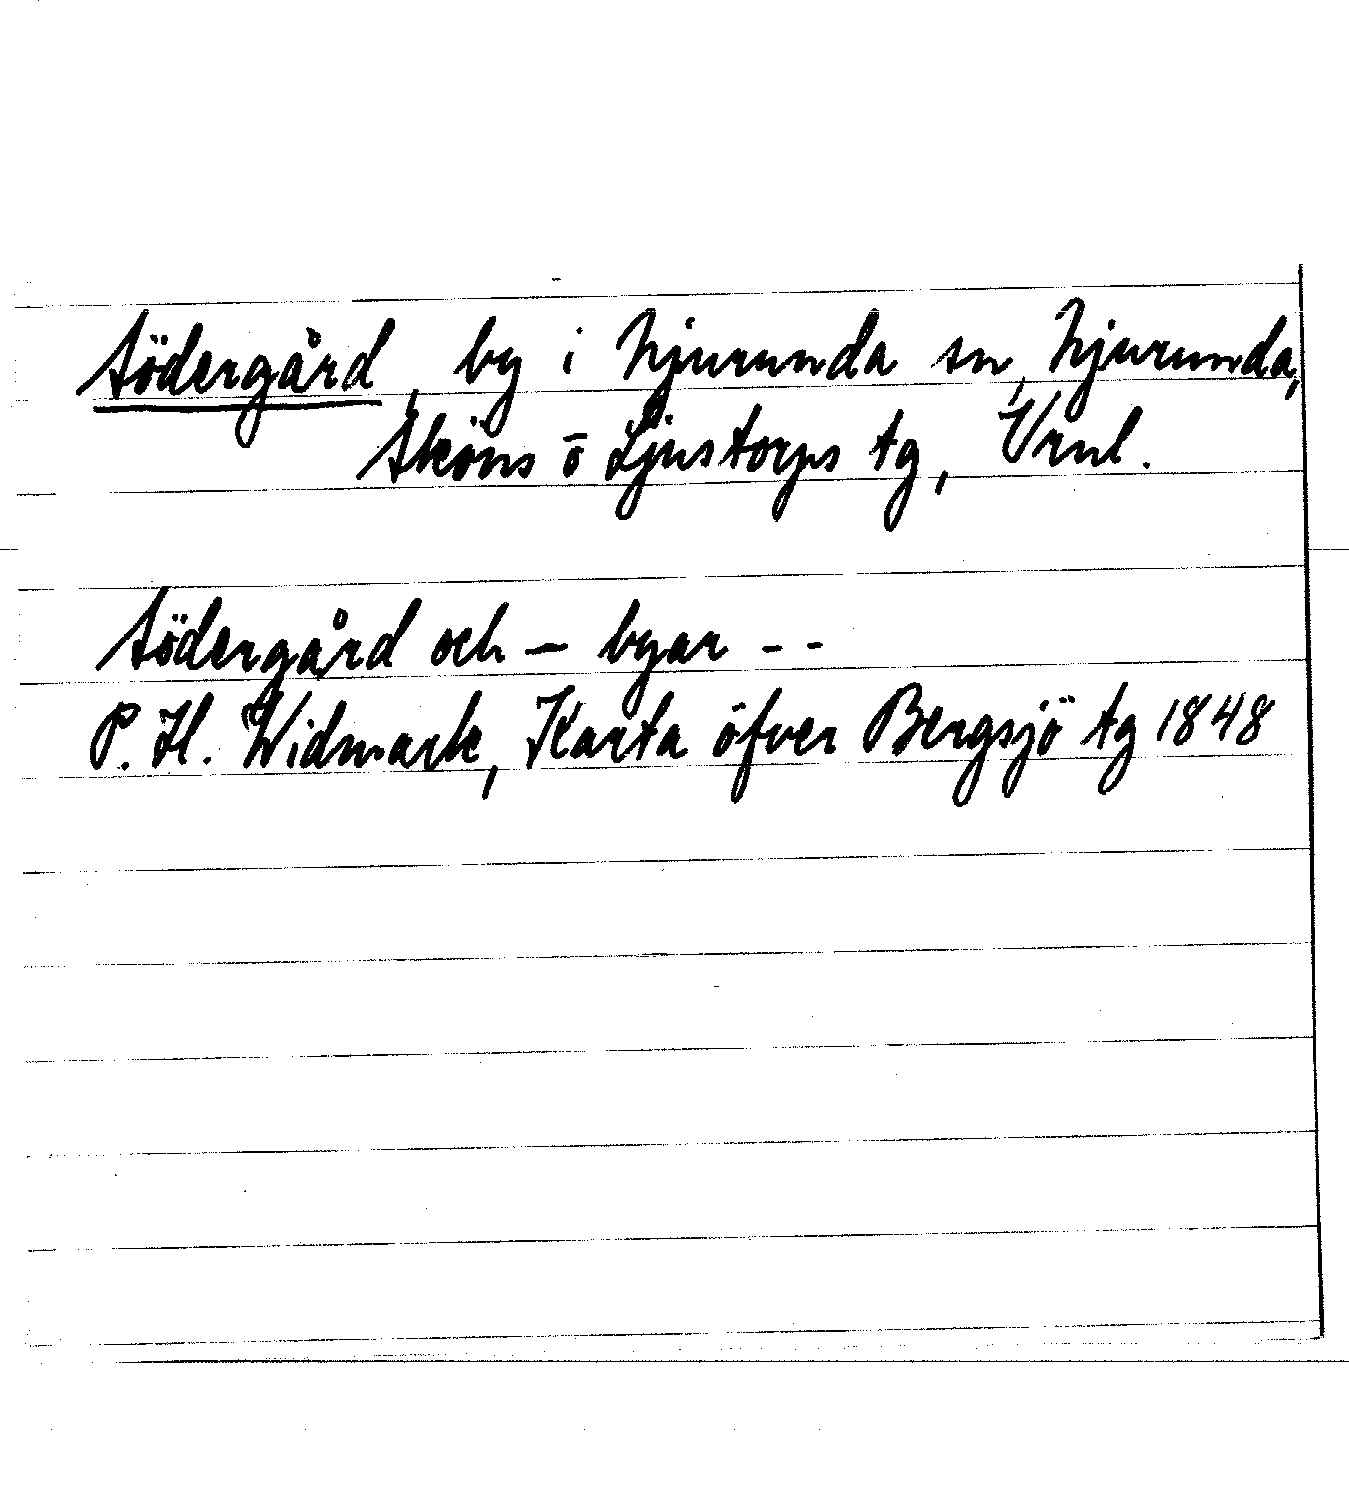 Södergård, by i Njurunda sn, Njurunda,
Sköns o Ljustorps tg, Vrnl.
Södergård och — byar - -
P. H. Widmark, Karta öfver Bergsjö tg 1848